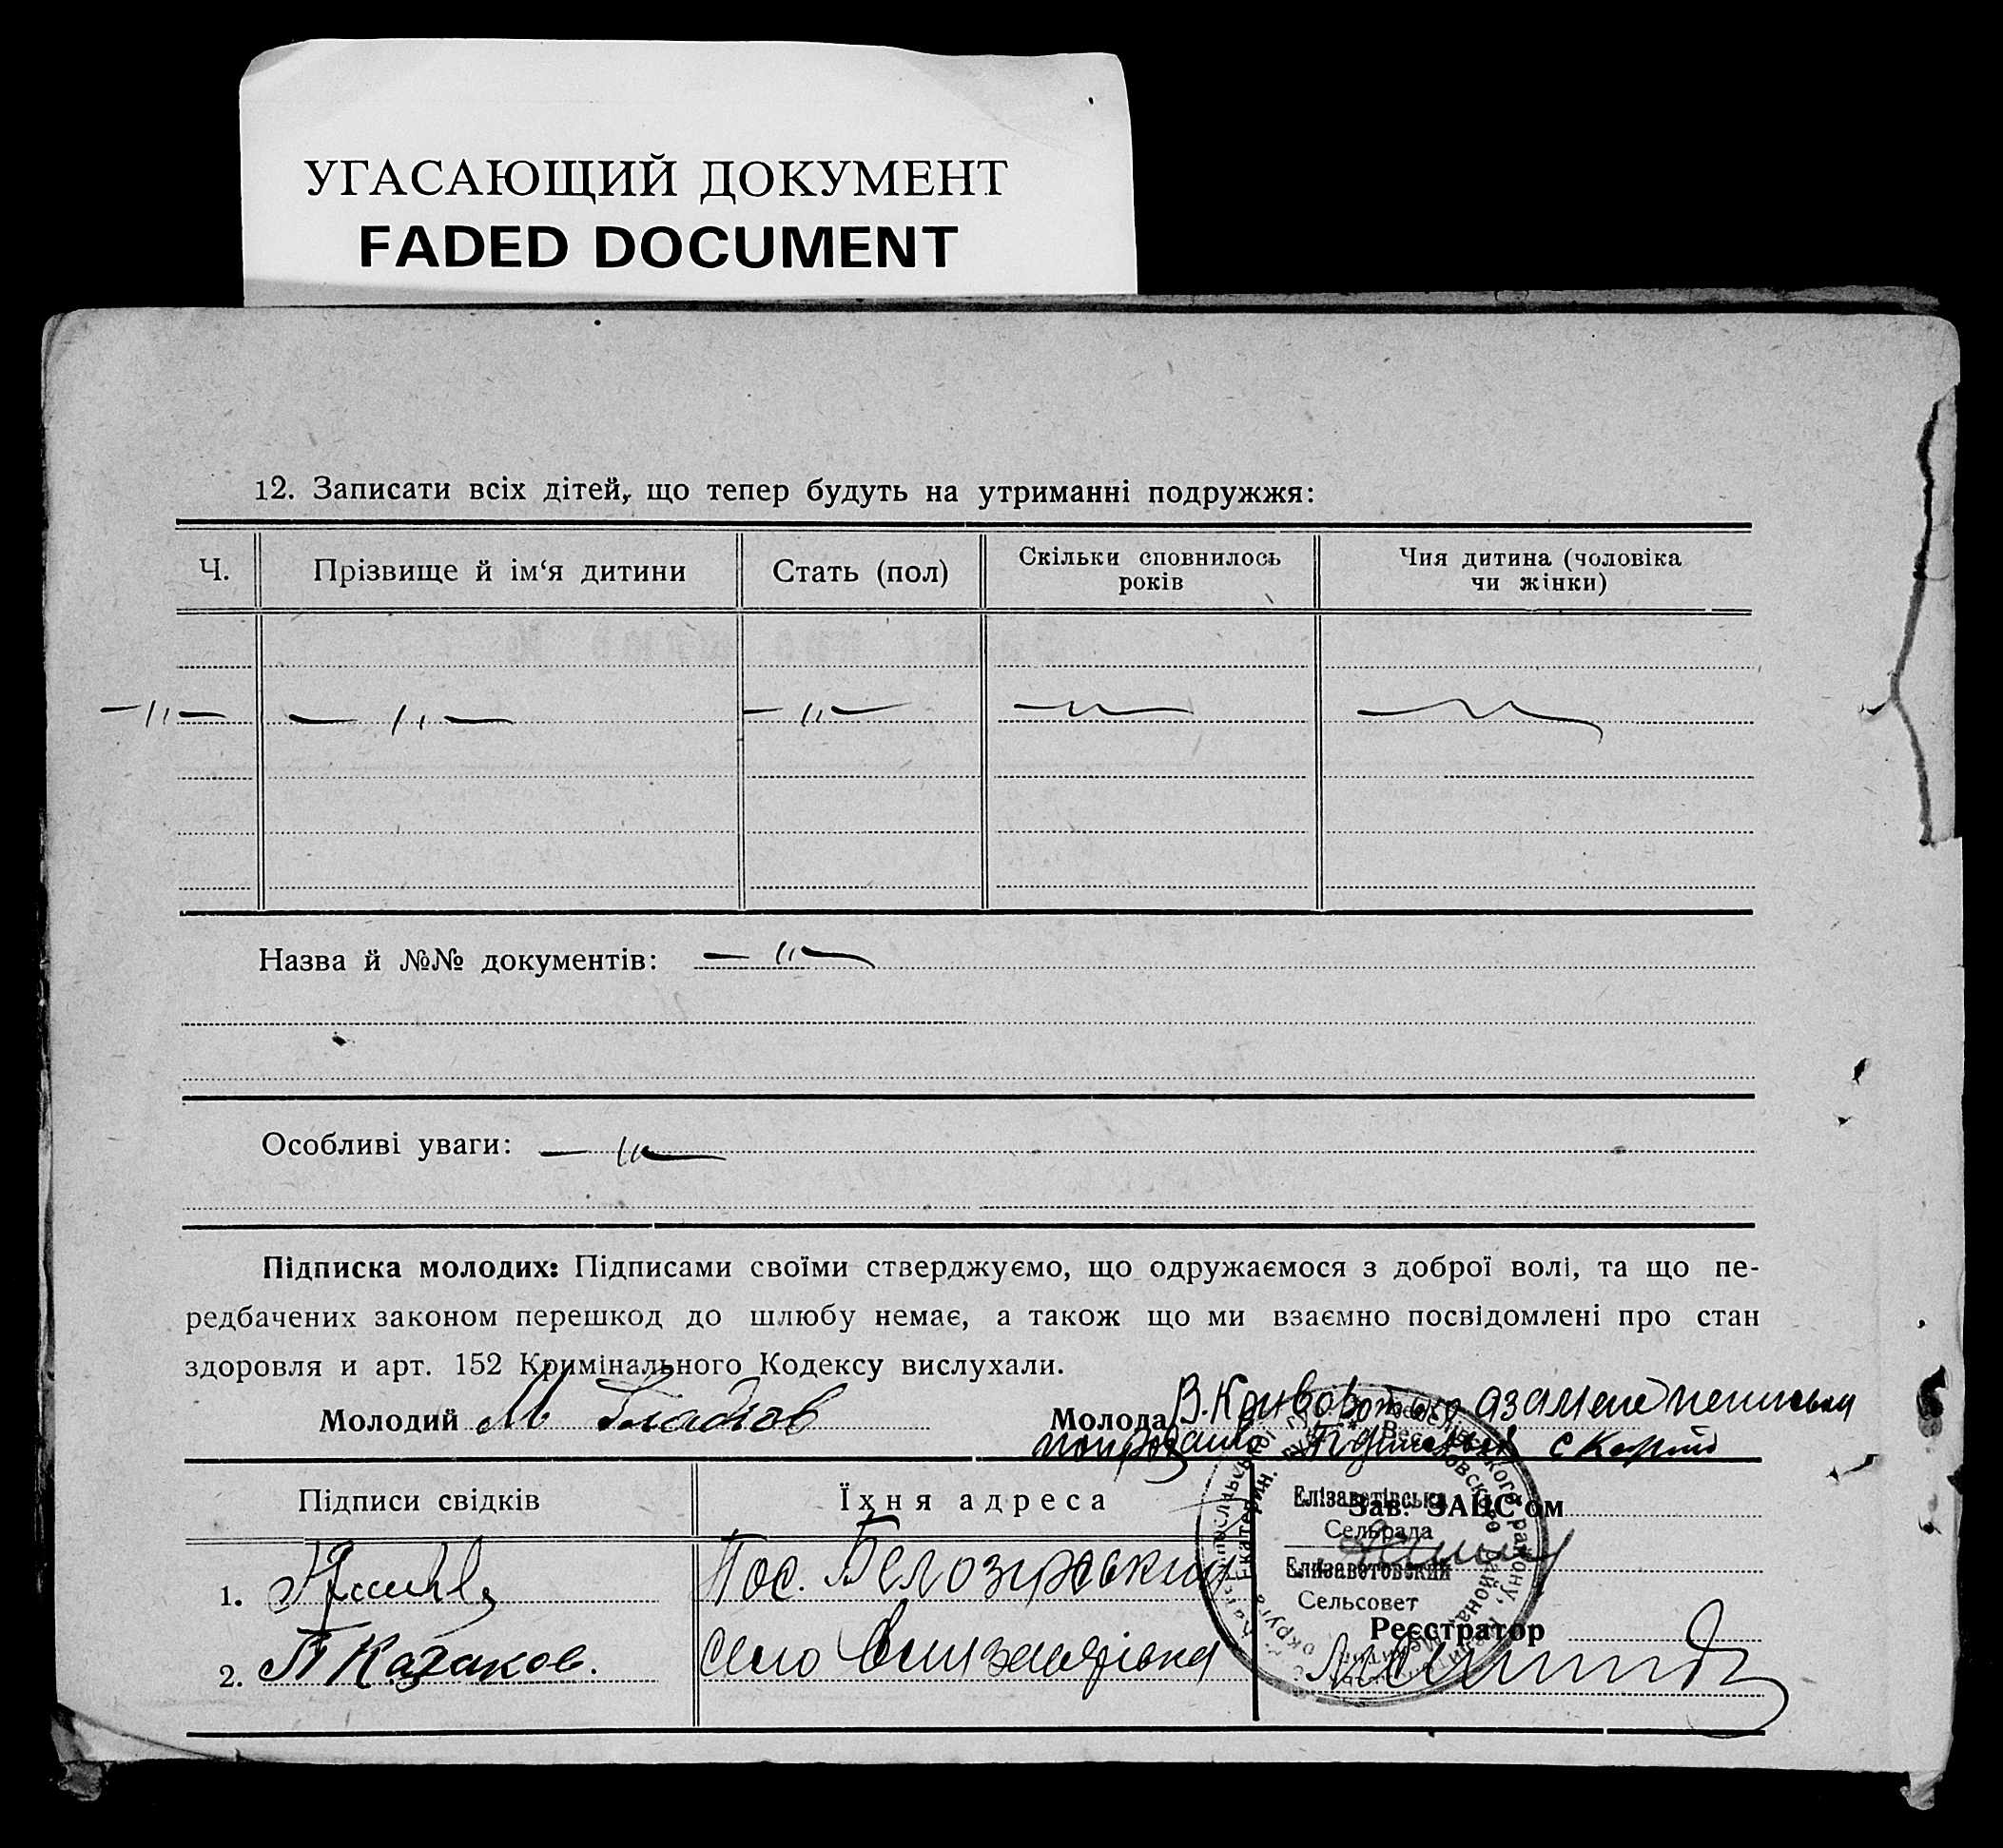 УГАСАЮЩИЙ ДОКУМЕНТ
FADED DOCUMENT
12. Записати всіх дітей, що тепер будуть на утриманні подружжя:
Ч. Прізвище й ім‘я дитини Стать (пол) Скільки сповнилось років Чия дитина (чоловіка чи жінки)
—〃— —〃— —〃— —〃— —〃—
Назва й №№ документів: —〃—
Особливі уваги: —〃—
Підписка молодих: Підписами своїми стверджуємо, що одружаємося з доброї волі, та що пе-
редбачених законом перешкод до шлюбу немає, а також що ми взаємно посвідомлені про стан
здоровля и арт. 152 Кримінального Кодексу вислухали.
Молодий М
Молода В.
Підписи свідків Їхня адреса Зав. ЗАЦС‘ом
Елізаветівська
Сельрада
Елизаветовский
Сельсовет
1. Пос.
2. П Казаков. село
Реєстратор